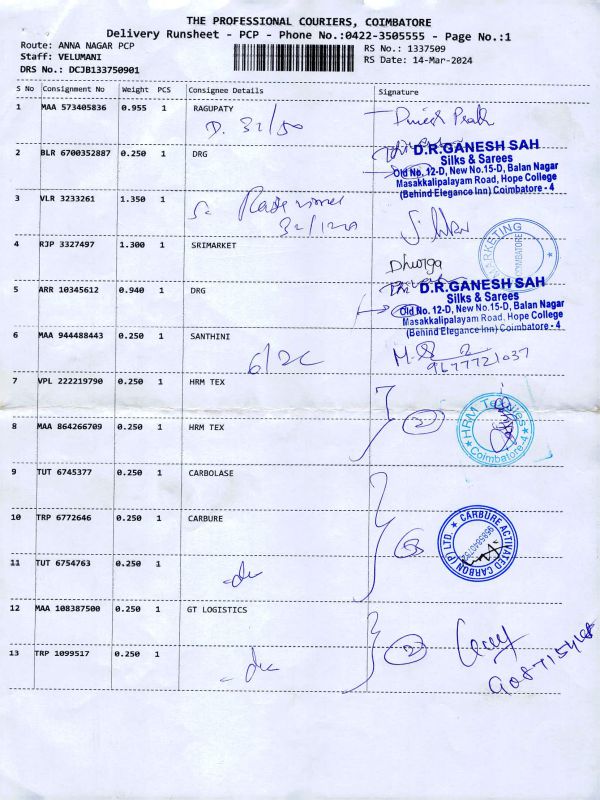 THE PROFESSIONAL COURIERS, COIMBATORE
Delivery Runsheet - PCP - Phone No.:0422-3505555 - Page No.:1
Route: ANNA NAGAR PCP RS No.: 1337509
Staff: VELUMANI RS Date: 14-Mar-2024
DRS No.: DCJB133750901
S No Consignment No Weight PCS Consignee Details Signature
1 MAA 573405836 0.955 1 RAGUPATY
D. 32/50
2 BLR 6700352887 0.250 1 DRG
D.R.GANESH SAH
Silks & Sarees
Old No. 12-D, New No.15-D, Balan Nagar
Masakkalipalayam Road, Hope College
(Behind Elegance Inn) Coimbatore - 4
3 VLR 3233261 1.350 1
4 RJP 3327497 1.300 1 SRIMARKET
MARKETING
COIMBATORE
Dhurga
5 ARR 10345612 0.940 1 DRG
D.R.GANESH SAH
Silks & Sarees
Old No. 12-D, New No.15-D, Balan Nagar
Masakkalipalayam Road, Hope College
(Behind Elegance Inn) Coimbatore - 4
6 MAA 944488443 0.250 1 SANTHINI
9677721037
7 VPL 222219790 0.250 1 HRM TEX
2
HRM Textiles
Coimbatore-4
8 MAA 864266709 0.250 1 HRM TEX
9 TUT 6745377 0.250 1 CARBOLASE
10 TRP 6772646 0.250 1 CARBURE
CARBURE ACTIVATED CARBON (P) LTD.
11 TUT 6754763 0.250 1
12 MAA 108387500 0.250 1 GT LOGISTICS
2
13 TRP 1099517 0.250 1